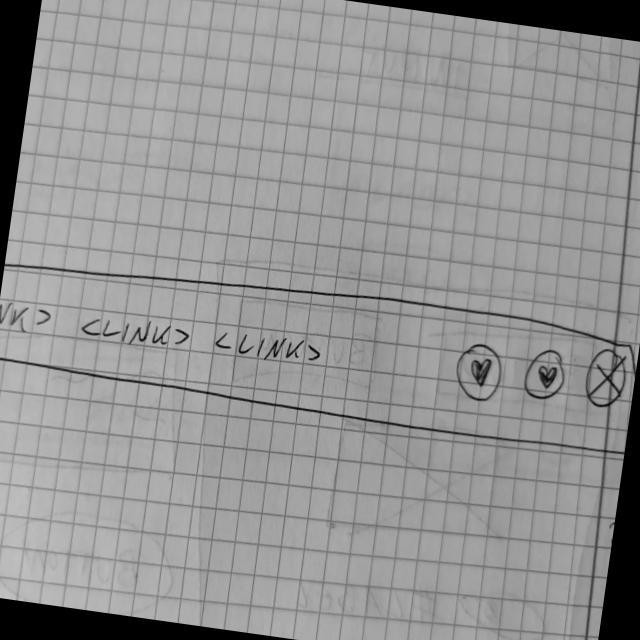 NK> <LINK> <LINK>